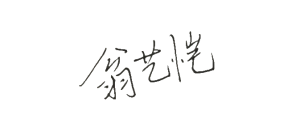 翁艺恺